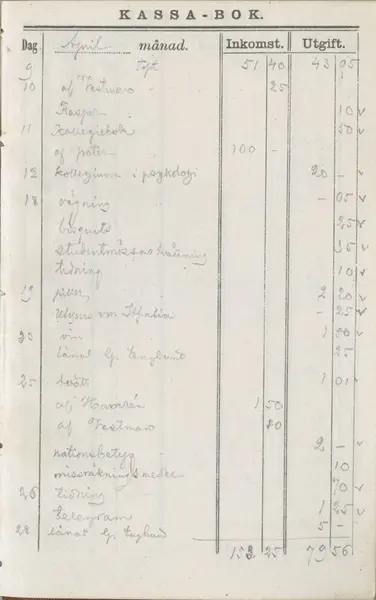 KASSA-BOK.
Dag April månad. Inkomst. Utgift.
9 51 40 43 95
10 af Vestman 25
Raspar 10
11 Kollegiebok 50
af pater 100 -
12 kollegium i psykologi 20 -
18 vägning - 05
bisquits 25
studentmössas tvättning 35
tidning 10
19 2 20
- 25
23 vin 1 80
lånat G. Englund 25
25 1 01
af 1 50
af Vestman 80
nationsbetyg 2 -
missräkningsmedel 10
26 tidning 70
telegram 1 25
28 lånat G. Englund 5 -
153 25 79 56